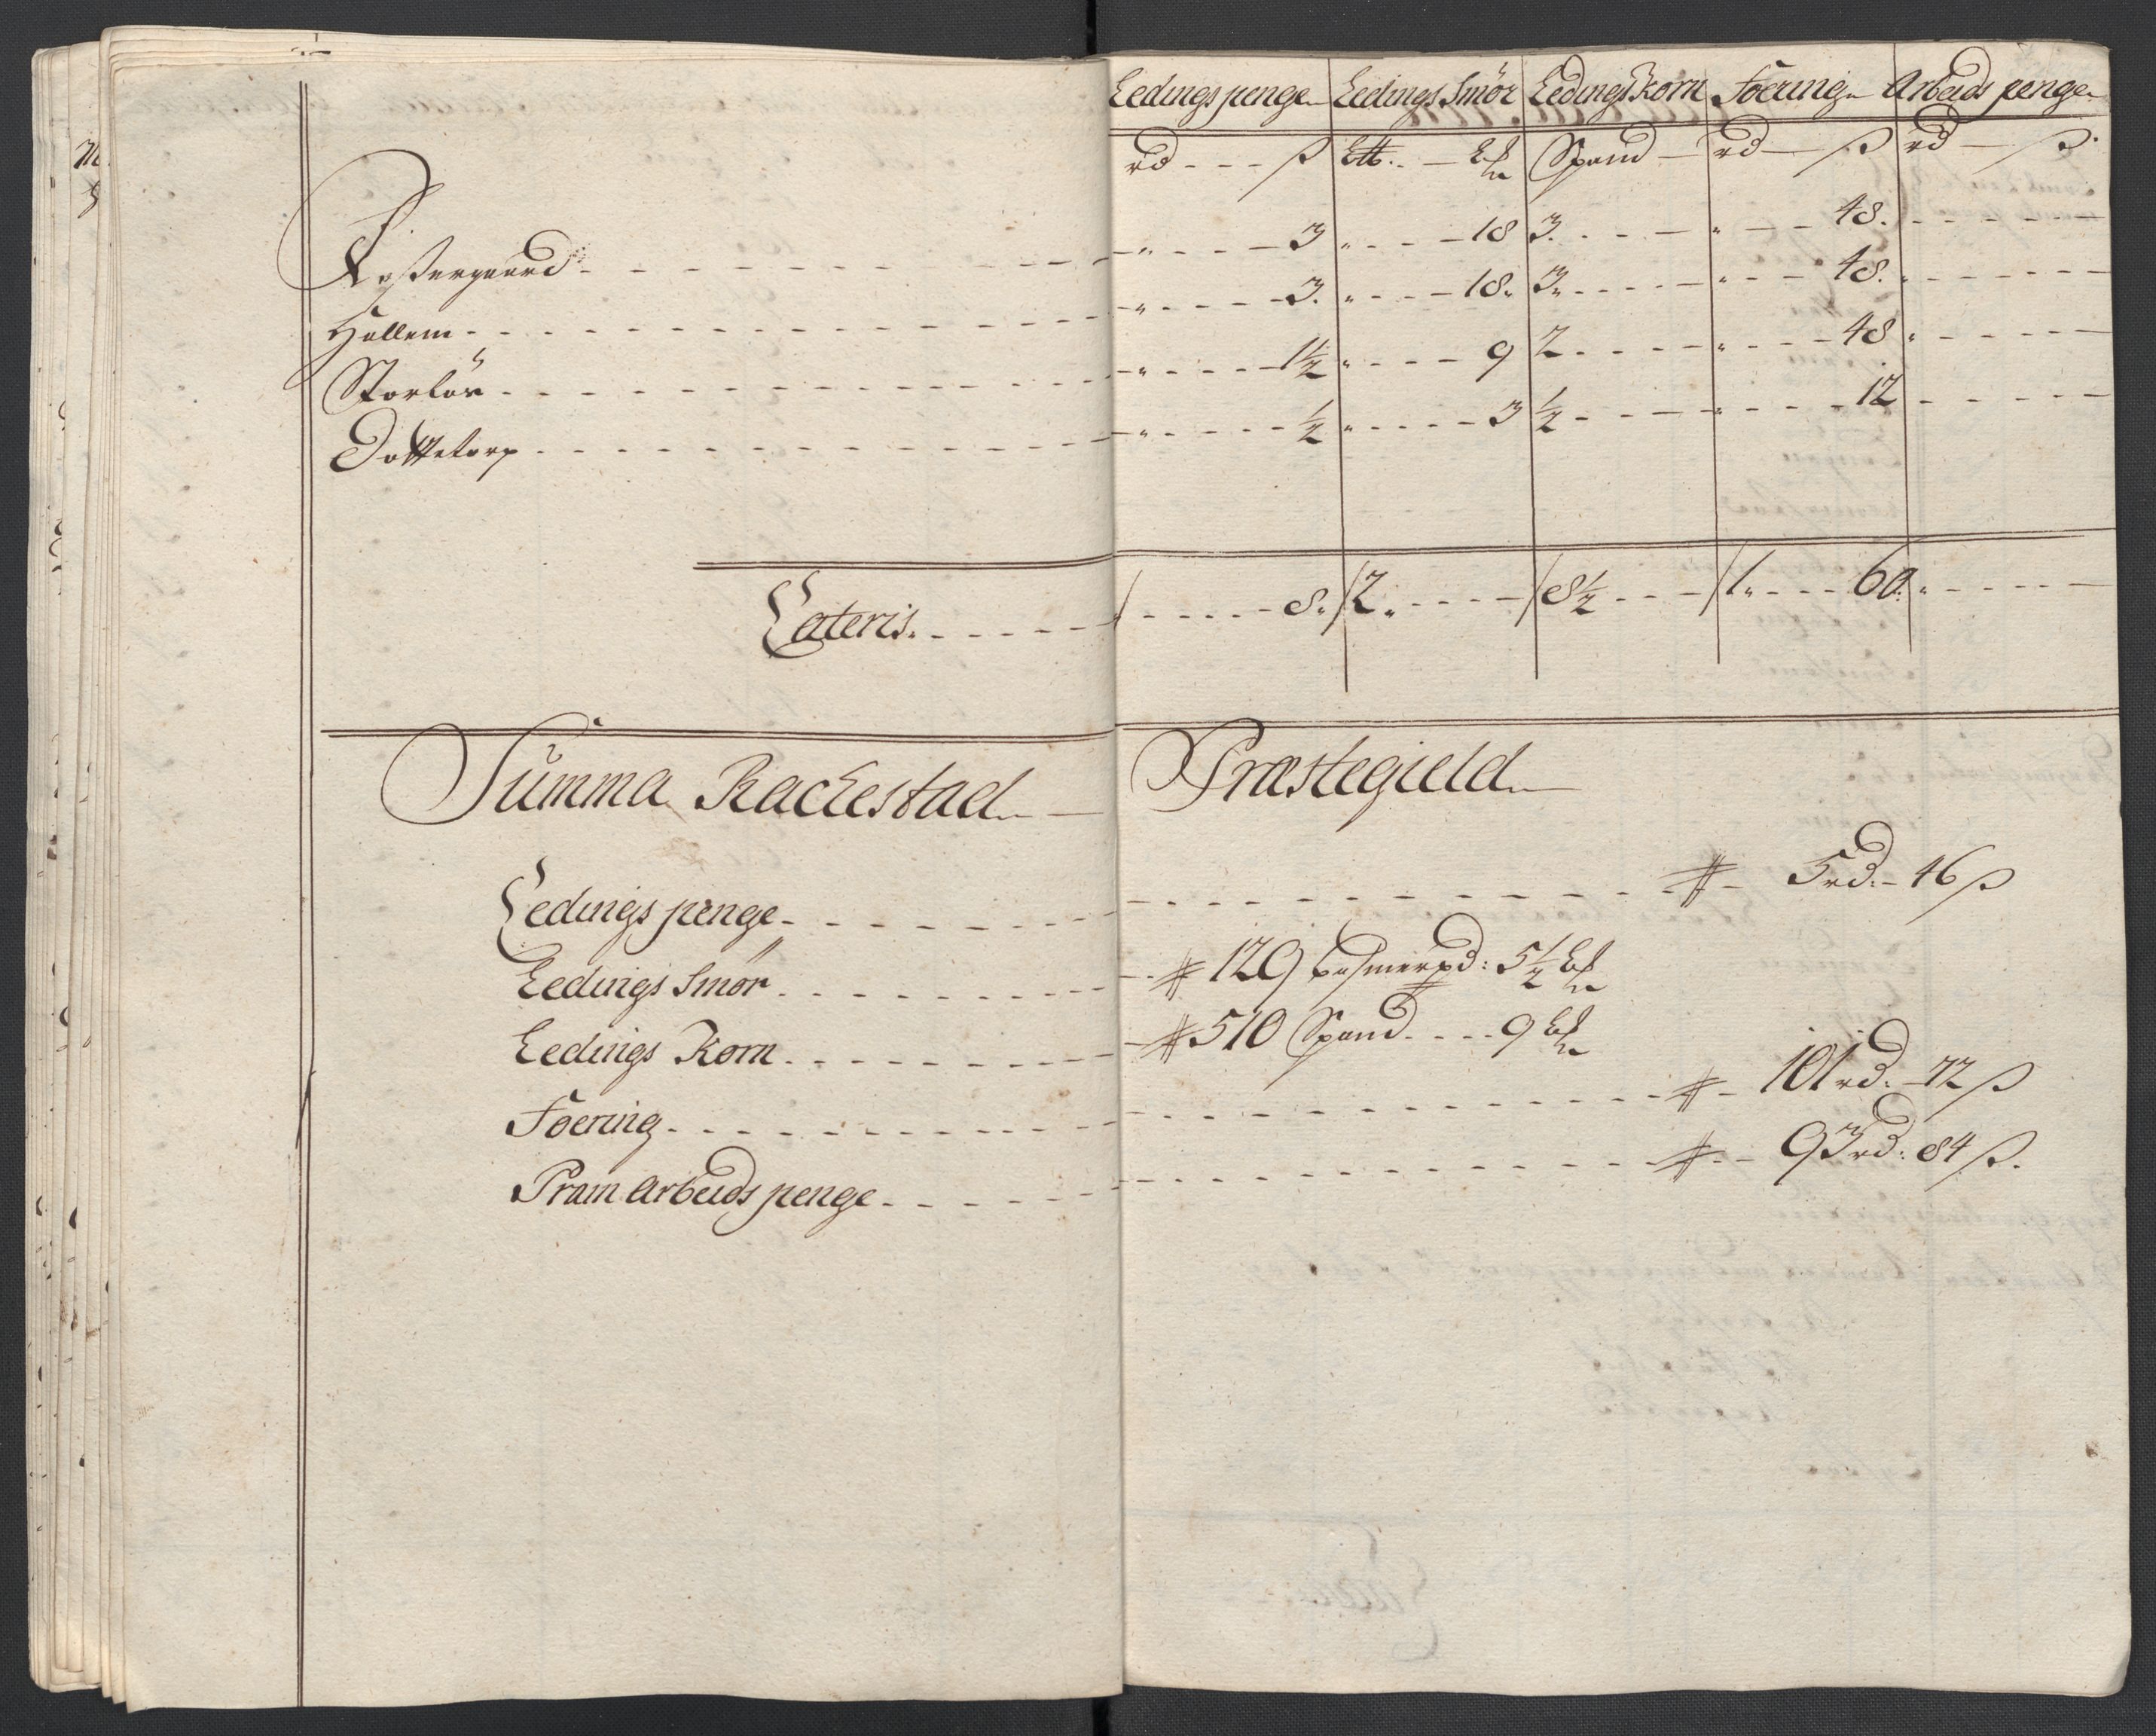 Ledings penge Ledings Smör Ledings Korn Foering Arbeids penge
rd - - - ß Spand - rd - ß rd - ß.
- " - - - - 3 " - - - 18 3. - - - - " - - 48. - - - - -
Hallem - - - " - - - - 3. " - - - 18. 3. - - - - " - - 48. " - - - -
Storlös - - - " - - - - 1½ " - - - 9 2 - - - - " - - - 48 " - - - -
- " - - - - ½ " - - - - 3 ½ - - - - " - - - 12 - - - - -
Lateris. - - - - - / - - - - 8. /2. - - - - /8½ - - - /1. - - - 60. " - - - -
Summa Rackestad Præstegield
Ledings penge - - - - - 5 rd. - 46 ß
Ledings Smör - - - - - 129 bismerpd: 5½
Ledings Korn - - - - - 510 Spand - - - 9
Foering - - - - - 101 rd. 72 ß
Pram Arbeids penge - - - - - 93 rd: 84 ß.